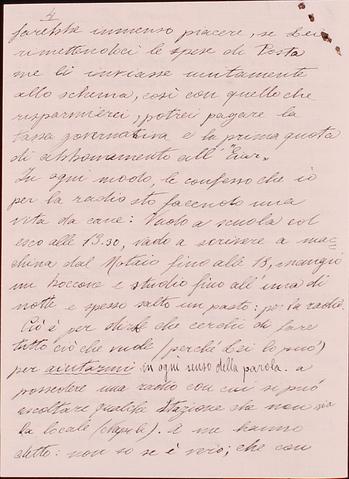 4
farebbe immenso piacere, se Lei
rimettendoci le spese di Posta
me li inviasse unitamente
allo schema, così con quello che
risparmierei, potrei pagare la
tassa governativa e la prima quota
di abbonamento all' "Eiar".
In ogni modo, le confesso che io
per la radio sto facendo una
vita da cane: Vado a scuola ed
esco alle 13.30, vado a scrivere a mac=
china dal Notaio fino alle 18, mangio
un boccone e studio fino all'una di
notte e spesso salto un pasto: per la radio.
Ciò è per dirle che cerchi di fare
tutto ciò che vuole (perché Lei lo può)
per aiutarmi in ogni senso della parola. a
possedere una radio con cui si può
ascoltare qualche Stazione che non sia
la locale (Napoli). A me hanno
detto: non so se è vero; che con